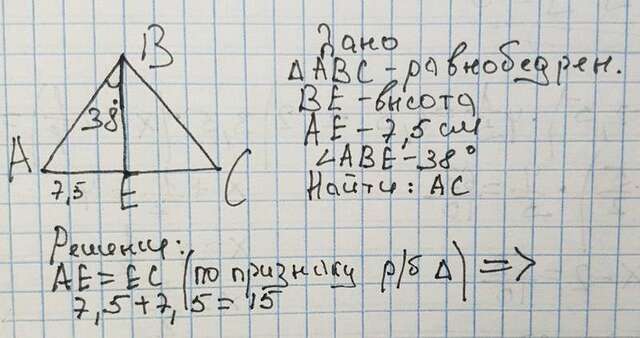 B
38°
A
7,5
E
C
Дано
△ABC - равнобедрен.
BE - высота
AE - 7,5 см
∠ABE - 38°
Найти: AC
Решение:
AE = EC (по признаку р/б △) =>
7,5 + 7,5 = 15